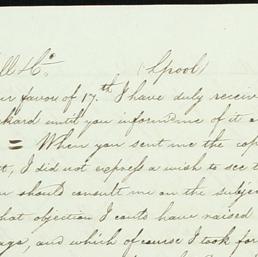 ll & Co. (Lpool)
ur favor of 17th. I have duly receiv
hard until you inform me of it a
= When you sent me the cop
t, I did not express a wish to see t
u should consult me on the subje
hat objection I could have raised
ago, and which of course I took for